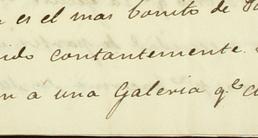 es el mas bonito de
ido contantemente.
n a una Galeria q.e